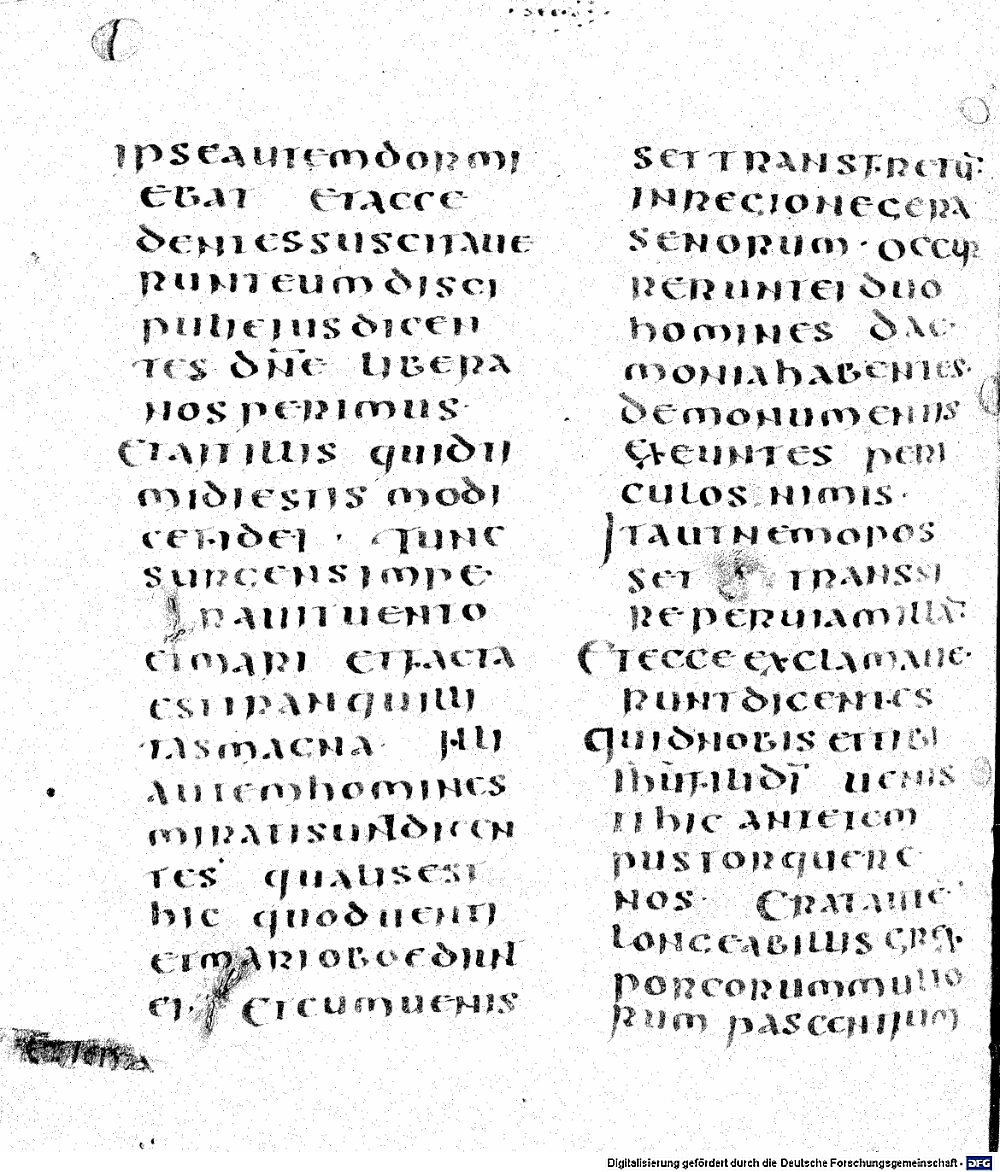 ipse autem dormi
ebat et acce
dentes suscitaue
runt eum disci
puli eius dicen
tes dn̄e libera
nos perimus·
Et ait illis quid ti
midi estis modi
ce fidei · Tunc
surgens impe
rauit uento
et mari et facta
est tranquilli
tas magna
autem homines
mirati sunt dicen
tes· qualis est
hic quod uenti
et mari oboediunt
ei· Et cum uenis
set trans fretū·
in regione gera
senorum· occur
rerunt ei duo
homines dae
monia habentes·
de monumentis
exeuntes peri
culos nimis·
Ita ut nemo pos
set transsi
re per uiam illā·
Et ecce exclamaue
runt dicentes
quid nobis et tibi
ih̄u fili dī uenis
ti hic ante tem
pus torquere
nos· Erat autē·
longe ab illis grex·
porcorum multo
rum pascentium
Digitalisierung gefördert durch die Deutsche Forschungsgemeinschaft - DFG